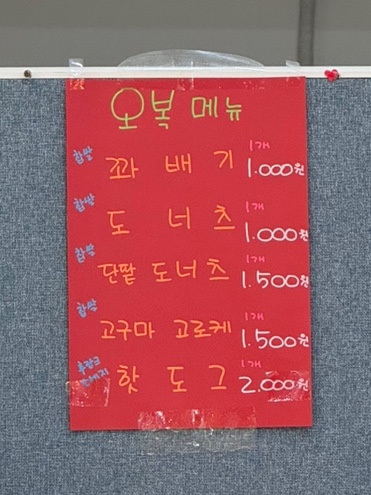 오복 메뉴
찹쌀 꽈배기 1개 1.000원
찹쌀 도너츠 1개 1.000원
찹쌀 단팥 도너츠 1개 1.500원
찹쌀 고구마 고로케 1개 1.500원
후랑크 소세지 핫도그 1개 2.000원